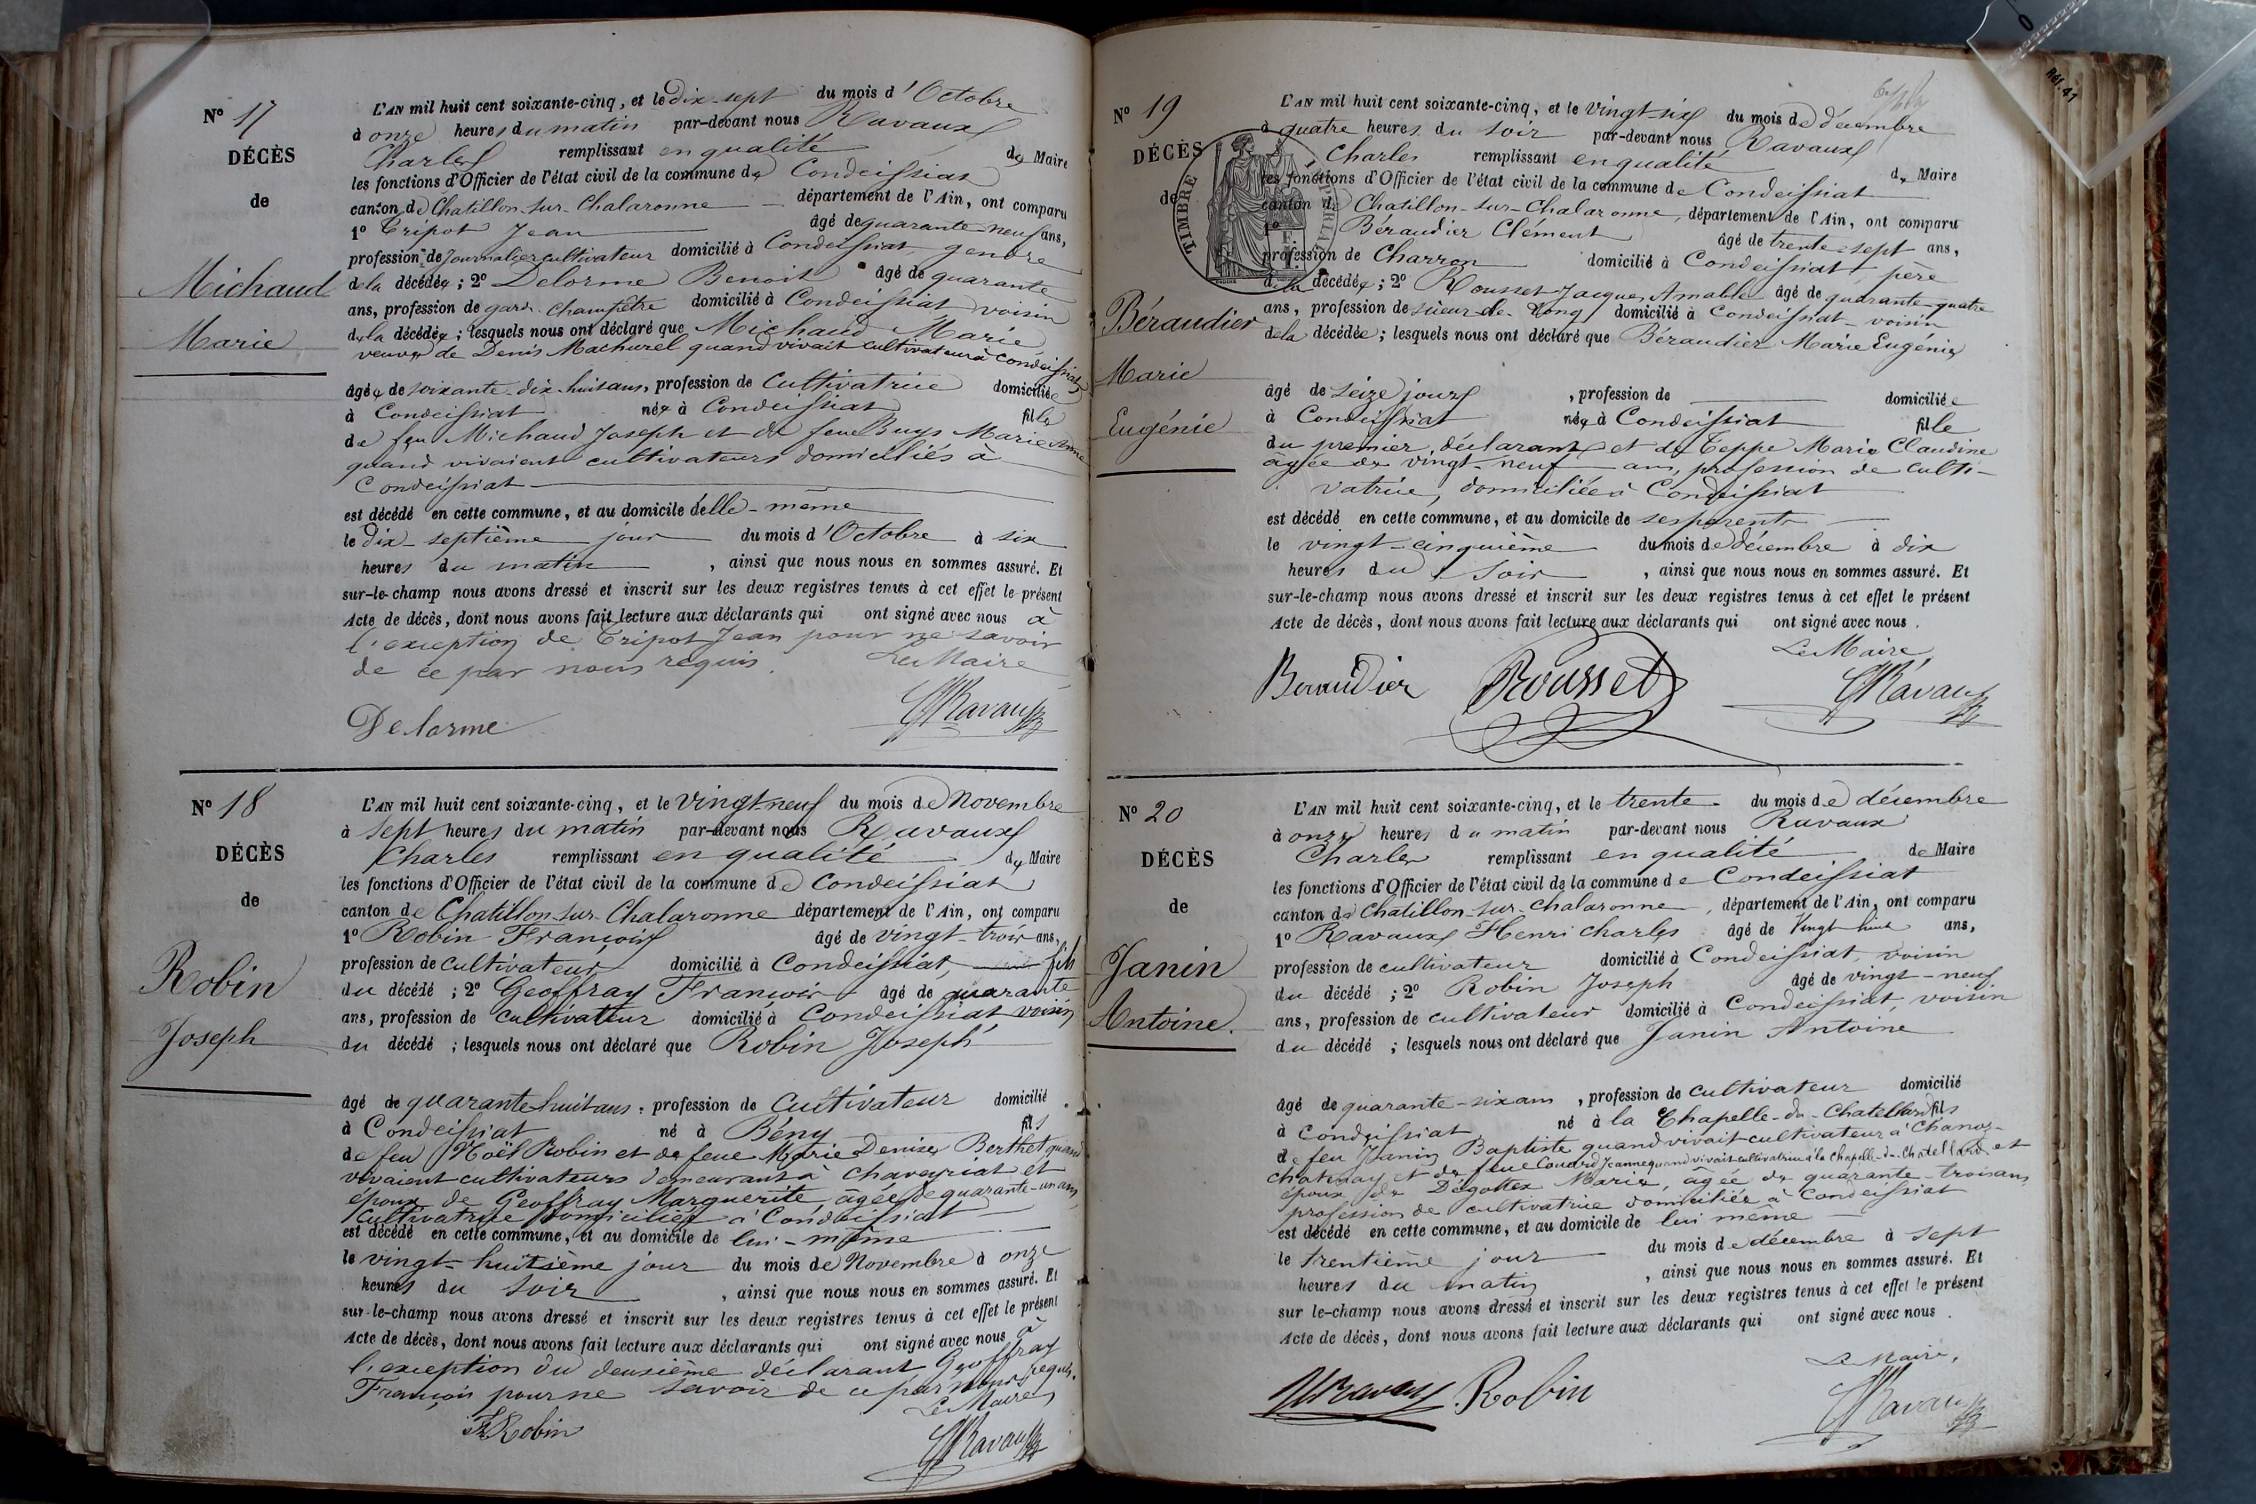 N° 17
DÉCÈS
de
Michaud
Marie
L'AN mil huit cent soixante-cinq, et le Dix-sept du mois d'Octobre
à onze heures du matin par-devant nous Ravaux
Charles remplissant en qualité de Maire
les fonctions d'Officier de l'état civil de la commune de Condeissiat
canton de Chatillon-sur-Chalaronne département de l'Ain, ont comparu
1° Tripot Jean âgé de quarante-neuf ans,
profession de Journalier cultivateur domicilié à Condeissiat, gendre
de la décédée ; 2° Delorme Benoit âgé de quarante
ans, profession de garde champêtre domicilié à Condeissiat voisin
de la décédée ; lesquels nous ont déclaré que Michaud Marie
veuve de Denis Machurel quand vivait cultivateur à Condeissiat
âgée de soixante-dix-huit ans, profession de Cultivatrice domiciliée
à Condeissiat née à Condeissiat fille
de feu Michaud Joseph et de feue Buys Marie Anne
quand vivaient cultivateurs domiciliés à
Condeissiat
est décédé en cette commune, et au domicile d'elle-même
le Dix-septième jour du mois d'Octobre à six
heures du matin, ainsi que nous nous en sommes assuré. Et
sur-le-champ nous avons dressé et inscrit sur les deux registres tenus à cet effet le présent
Acte de décès, dont nous avons fait lecture aux déclarants qui ont signé avec nous à
l'exception de Tripot Jean pour ne savoir
de ce par nous requis. Le Maire
Delorme Ravaux
N° 18
DÉCÈS
de
Robin
Joseph
L'AN mil huit cent soixante-cinq, et le vingt-neuf du mois de Novembre
à sept heures du matin par-devant nous Ravaux
Charles remplissant en qualité de Maire
les fonctions d'Officier de l'état civil de la commune de Condeissiat
canton de Chatillon-sur-Chalaronne département de l'Ain, ont comparu
1° Robin François âgé de vingt-trois ans,
profession de cultivateur domicilié à Condeissiat, fils
du décédé ; 2° Geoffray François âgé de quarante
ans, profession de cultivateur domicilié à Condeissiat voisin
du décédé ; lesquels nous ont déclaré que Robin Joseph
âgé de quarante huit ans, profession de Cultivateur domicilié
à Condeissiat né à Bény fils
de feu Noël Robin et de feue Marie Denise Berthet quand
vivaient cultivateurs demeurant à Chaveyriat et
époux de Geoffray Marguerite âgée de quarante-un ans,
cultivatrice domiciliée à Condeissiat
est décédé en cette commune, et au domicile de lui-même
le vingt-huitième jour du mois de Novembre à onze
heures du soir, ainsi que nous nous en sommes assuré. Et
sur-le-champ nous avons dressé et inscrit sur les deux registres tenus à cet effet le présent
Acte de décès, dont nous avons fait lecture aux déclarants qui ont signé avec nous à
l'exception du deuxième déclarant Geoffray
François pour ne savoir de ce par nous requis.
Le Maire
F. Robin Ravaux
N° 19
DÉCÈS
de
TIMBRE
Béraudier
Marie
Eugénie
L'AN mil huit cent soixante-cinq, et le vingt-six du mois de décembre
à quatre heures du soir par-devant nous Ravaux
Charles remplissant en qualité de Maire
les fonctions d'Officier de l'état civil de la commune de Condeissiat
canton de Chatillon-sur-Chalaronne, département de l'Ain, ont comparu
1° Béraudier Clément âgé de trente-sept ans,
profession de Charron domicilié à Condeissiat, père
de la décédée ; 2° Rousset Jacques Amable âgé de quarante-quatre
ans, profession de sieur de long domicilié à Condeissiat voisin
de la décédée ; lesquels nous ont déclaré que Béraudier Marie Eugénie
âgé de seize jours, profession de domiciliée
à Condeissiat née à Condeissiat fille
du premier déclarant et de Teppe Marie Claudine
âgée de vingt-neuf ans, profession de culti-
vatrice, domiciliée à Condeissiat
est décédé en cette commune, et au domicile de ses parents
le vingt-cinquième du mois de décembre à dix
heures du soir, ainsi que nous nous en sommes assuré. Et
sur-le-champ nous avons dressé et inscrit sur les deux registres tenus à cet effet le présent
Acte de décès, dont nous avons fait lecture aux déclarants qui ont signé avec nous.
Le Maire
Beraudier Rousset Ravaux
N° 20
DÉCÈS
de
Janin
Antoine.
L'AN mil huit cent soixante-cinq, et le trente du mois de décembre
à onze heures du matin par-devant nous Ravaux
Charles remplissant en qualité de Maire
les fonctions d'Officier de l'état civil de la commune de Condeissiat
canton de Chatillon-sur-Chalaronne, département de l'Ain, ont comparu
1° Ravaux Henri Charles âgé de Vingt huit ans,
profession de cultivateur domicilié à Condeissiat, voisin
du décédé ; 2° Robin Joseph âgé de vingt-neuf
ans, profession de cultivateur domicilié à Condeissiat, voisin
du décédé ; lesquels nous ont déclaré que Janin Antoine
âgé de quarante-six ans, profession de cultivateur domicilié
à Condeissiat né à la Chapelle-du-Chatellard fils
de feu Janin Baptiste quand vivait cultivateur à Chanoz-
chatenay et de feue Couard Jeanne quand vivait cultivatrice à la Chapelle-du-Chatellard et
époux de Dégottex Marie, âgée de quarante-trois ans,
profession de cultivatrice domiciliée à Condeissiat
est décédé en cette commune, et au domicile de lui même
le trentième jour du mois de décembre à sept
heures du matin, ainsi que nous nous en sommes assuré. Et
sur le-champ nous avons dressé et inscrit sur les deux registres tenus à cet effet le présent
Acte de décès, dont nous avons fait lecture aux déclarants qui ont signé avec nous.
Le Maire,
Ravaux Robin Ravaux